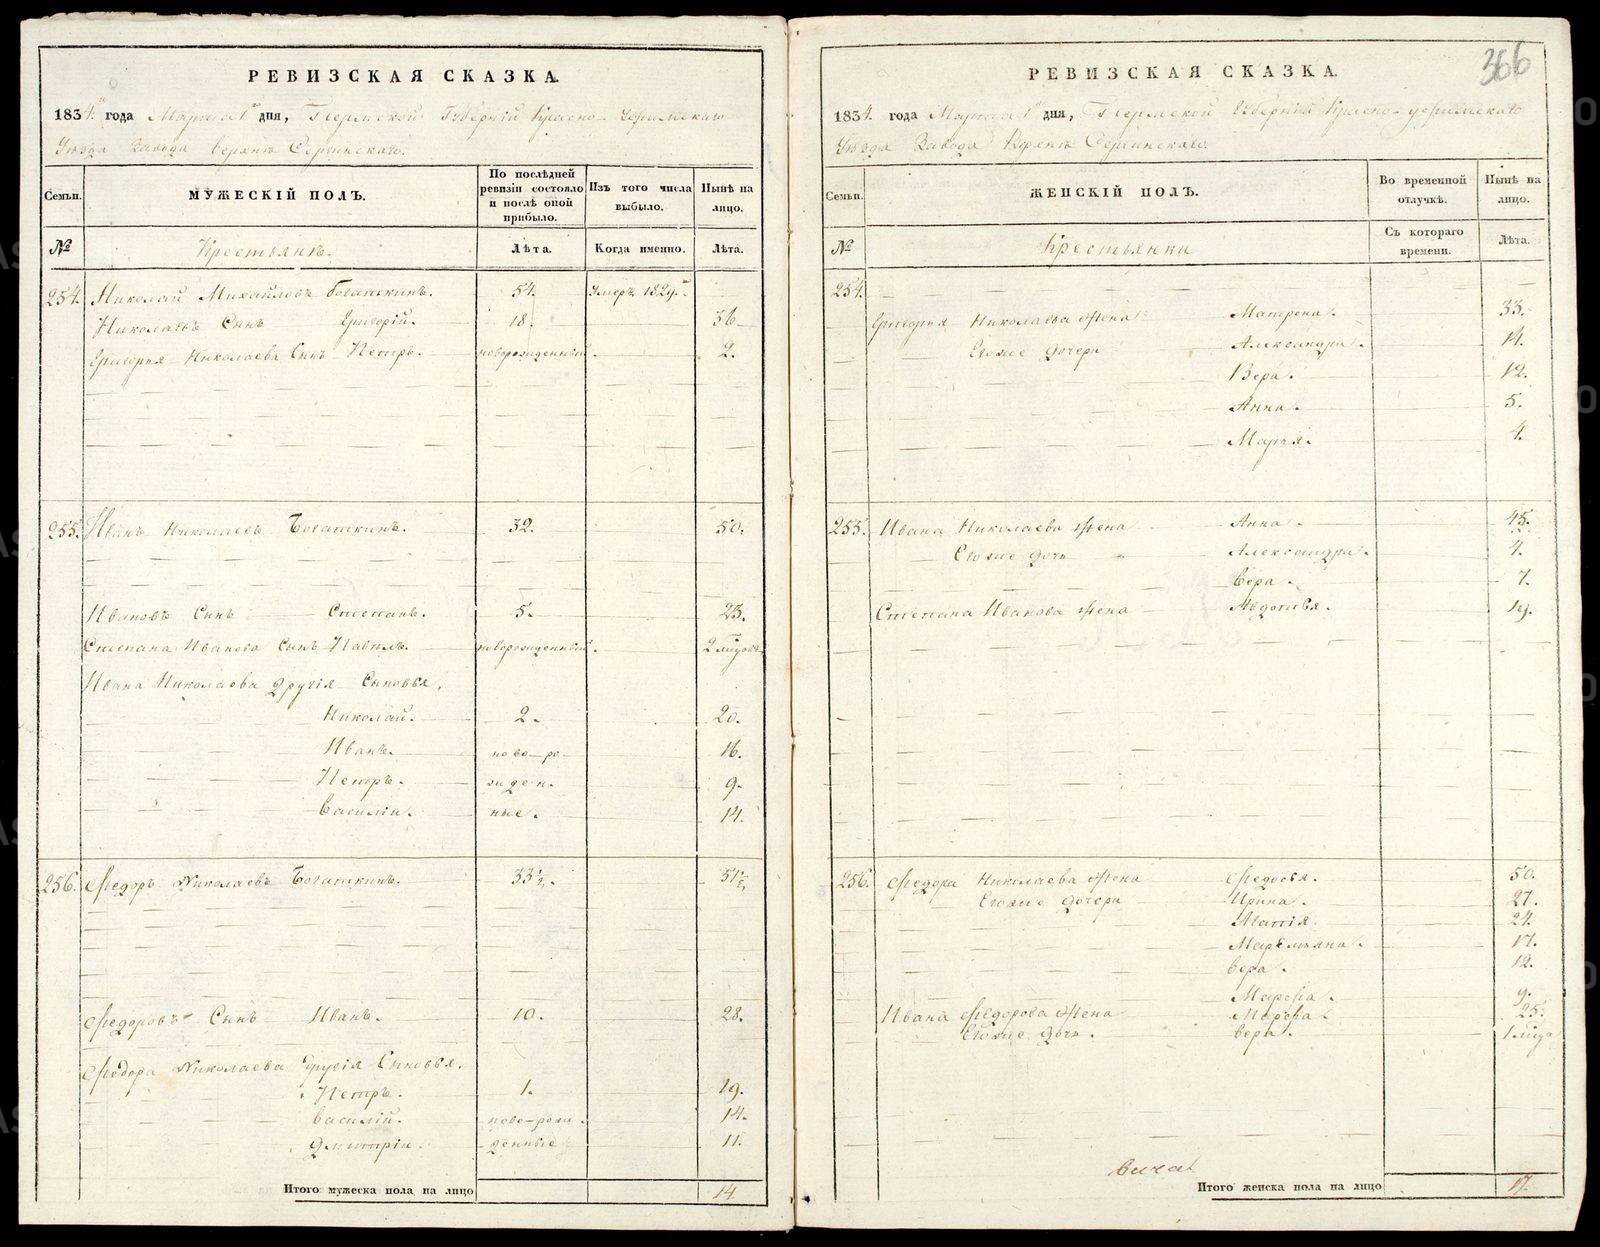 РЕВИЗСКАЯ СКАЗКА.
1834 года Марта 1 дня, Пермской Губерніи Красно-Уфимскаго
Уѣзда Завода Верхнѣ Сергинскаго.
Семьи.
МУЖЕСКІЙ ПОЛЪ.
По послѣдней ревизіи состояло и послѣ оной прибыло.
Изъ того числа выбыло.
Нынѣ на лицо.
№
Крестьянъ.
Лѣта.
Когда именно.
Лѣта.
254. Николай Михайловъ Богаткинъ. 54. Умеръ 1829.
Николаевъ Сынъ Григорій. 18. 36
Григорья Николаева Сынъ Петръ. новорожденный. 2.
255. Иванъ Николаевъ Богаткинъ. 32. 50.
Ивановъ Сынъ Степанъ. 5. 23.
Степана Иванова Сынъ Павелъ. новорожденный. 2
Ивана Николаева Другія Сыновья.
Николай. 2. 20.
Иванъ. ново-ро- 16.
Петръ. жден. 9.
Василіи. ные. 14.
256. Федоръ Николаевъ Богаткинъ. 33 1/2. 51 1/2
Федоровъ Сынъ Иванъ. 10. 28.
Федора Николаева Другія Сыновья.
Петръ. 1. 19.
Василій. ново-рож 14.
Дмитріи. денные 11.
Итого мужеска пола на лицо 14
366
РЕВИЗСКАЯ СКАЗКА.
1834. года Марта 1 дня, Пермской Губерніи Красно-уфимскаго
Уѣзда Завода Верхнѣ Сергинскаго.
Семьи.
ЖЕНСКІЙ ПОЛЪ.
Во временной отлучкѣ.
Нынѣ на лицо.
№
Крестьянки
Съ котораго времени.
Лѣта.
254.
Григорья Николаева Жена Матрена. 33.
Егоже Дочери Александра. 14.
Вера. 12.
Анна. 5.
Марья. 4.
255. Ивана Николаева Жена Анна. 45.
Егоже Дочь Александра. 4.
Вера. 7.
Степана Иванова Жена Авдотья. 19.
256. Федора Николаева Жена Федосья. 50.
Егоже Дочери Ирина. 27.
24.
Маремьяна. 17.
Вера. 12.
Марфа. 9.
Ивана Федорова Жена Марфа. 25.
Егоже Дочь. Вера. 1
Итого женска пола на лицо 17.